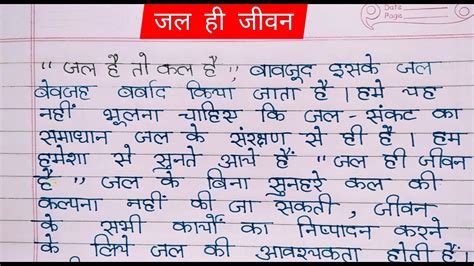 जल ही जीवन
Date
Page
" जल है तो कल है ", बावजूद इसके जल
बेवजह बर्बाद किया जाता है । हमे यह
नहीं भूलना चाहिए कि जल - संकट का
समाधान जल के संरक्षण से ही है । हम
हमेशा से सुनते आये हैं " जल ही जीवन
है " जल के बिना सुनहरे कल की
कल्पना नहीं की जा सकती , जीवन
के सभी कार्यो का निष्पादन करने
के लिये जल की आवश्यकता होती है।